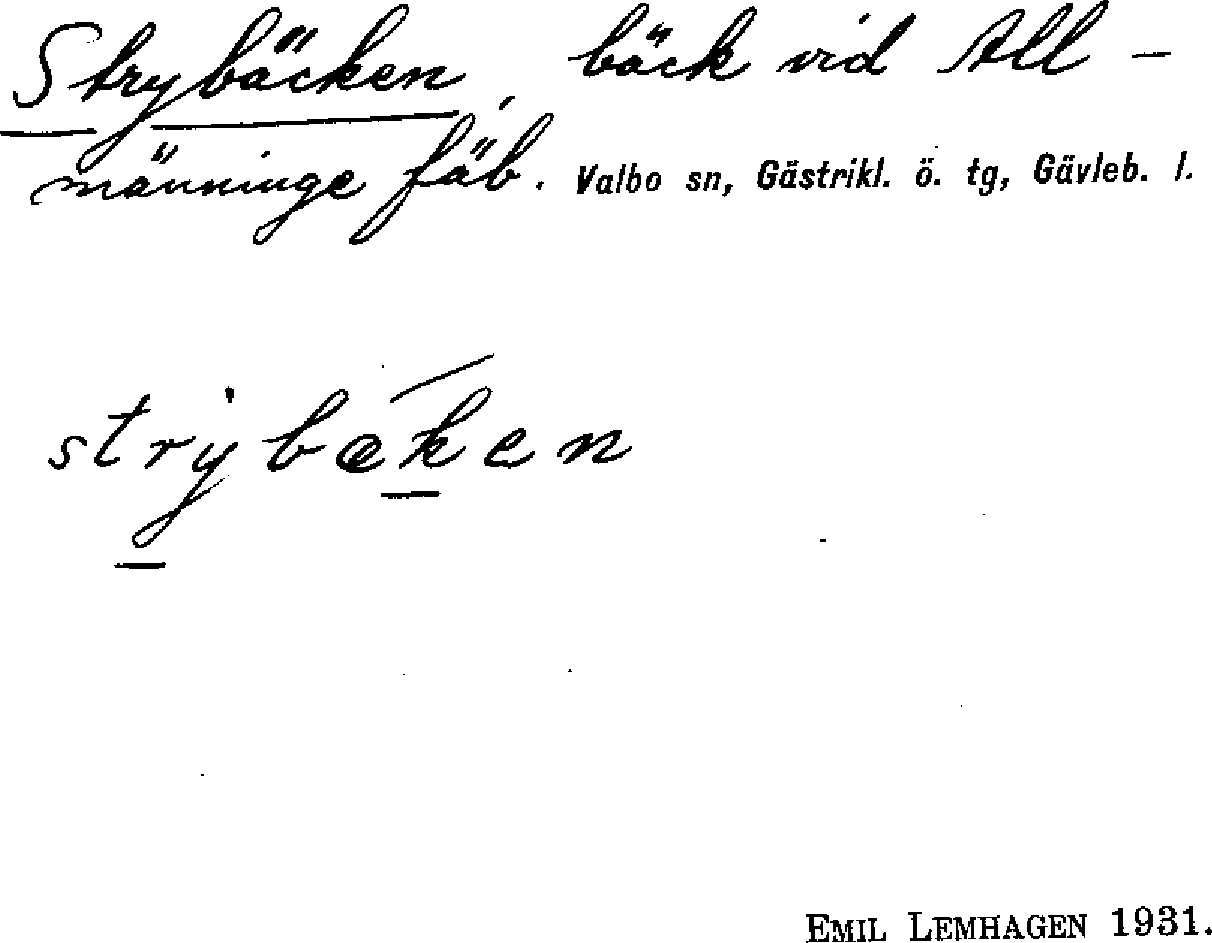 Strybäcken, bäck vid All-
männinge fäb. Valbo sn, Gästrikl. ö. tg, Gävleb. l.
strybæken
EMIL LEMHAGEN 1931.